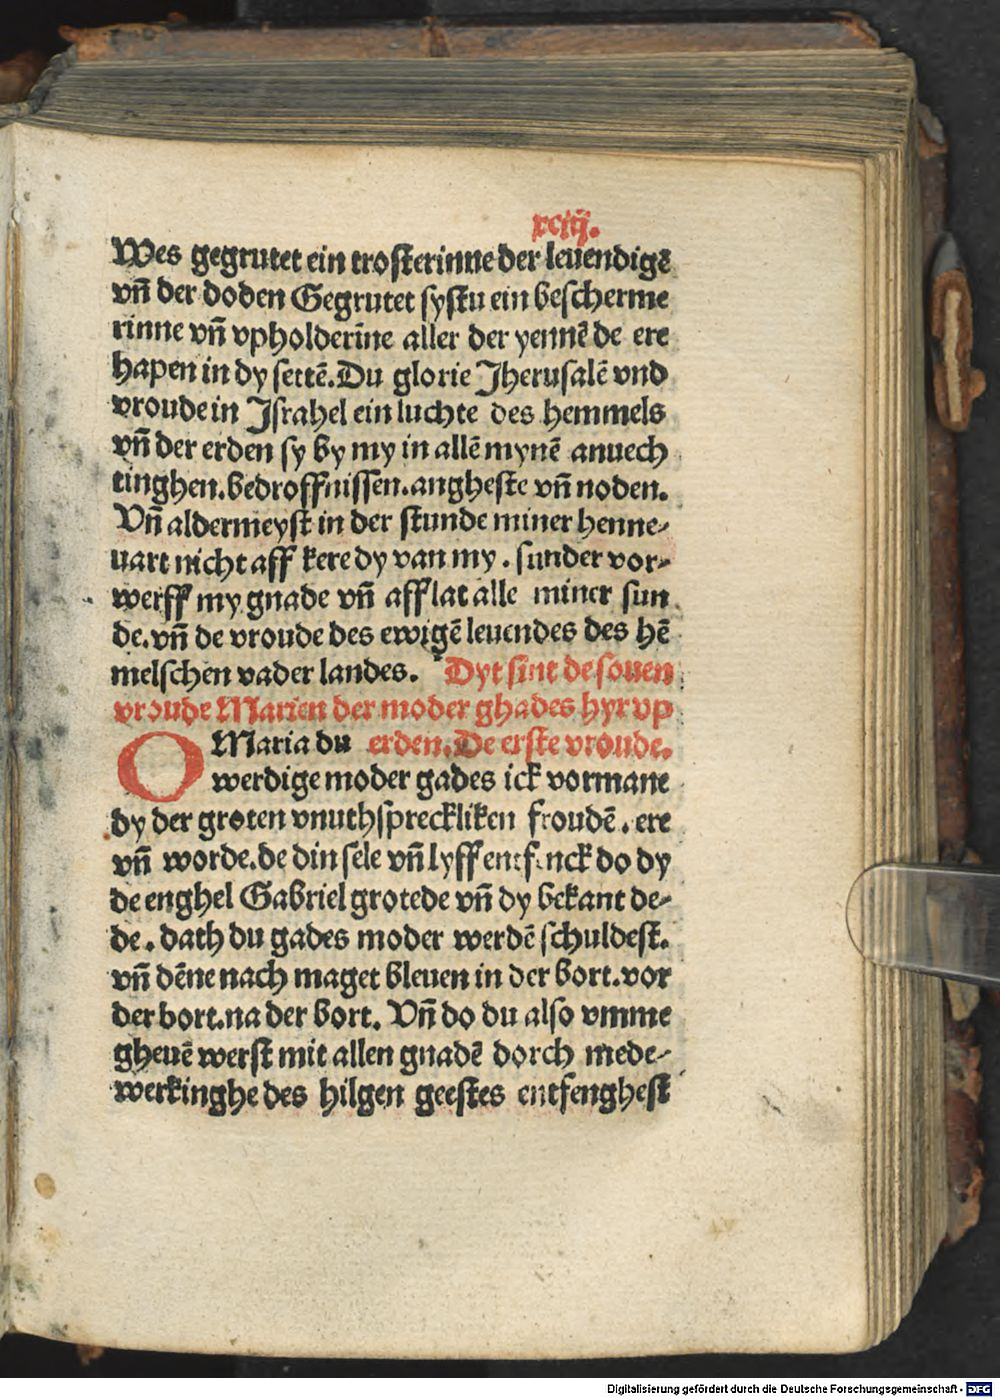 xciij.
Wes gegrutet ein trosterinne der leuendigē
vn̄ der doden Gegrutet systu ein bescherme
rinne vn̄ vpholderīne aller der yennē de ere
hapen in dy settē. Du glorie Jherusalē vnd
vroude in Jsrahel ein luchte des hemmels
vn̄ der erden sy by my in allē mynē anuech
tinghen. bedroffnissen. angheste vn̄ noden.
Vn̄ aldermeyst in der stunde miner henne⸗
uart nicht aff kere dy van my. sunder vor⸗
werff my gnade vn̄ afflat alle miner sun
de. vn̄ de vroude des ewigē leuendes des hē
melschen vader landes. Dyt sint de souen
vroude Marien der moder ghades hyr vp
O Maria du erden. De erste vroude.
werdige moder gades ick vormane
dy der groten vnuthspreckliken froudē. ere
vn̄ worde. de din sele vn̄ lyff entfinck do dy
de enghel Gabriel grotede vn̄ dy bekant de⸗
de. dath du gades moder werdē schuldest.
vn̄ dēne nach maget bleuen in der bort. vor
der bort. na der bort. Vn̄ do du also vmme
gheuē werst mit allen gnadē dorch mede⸗
werkinghe des hilgen geestes entfenghest
Digitalisierung gefördert durch die Deutsche Forschungsgemeinschaft - DFG